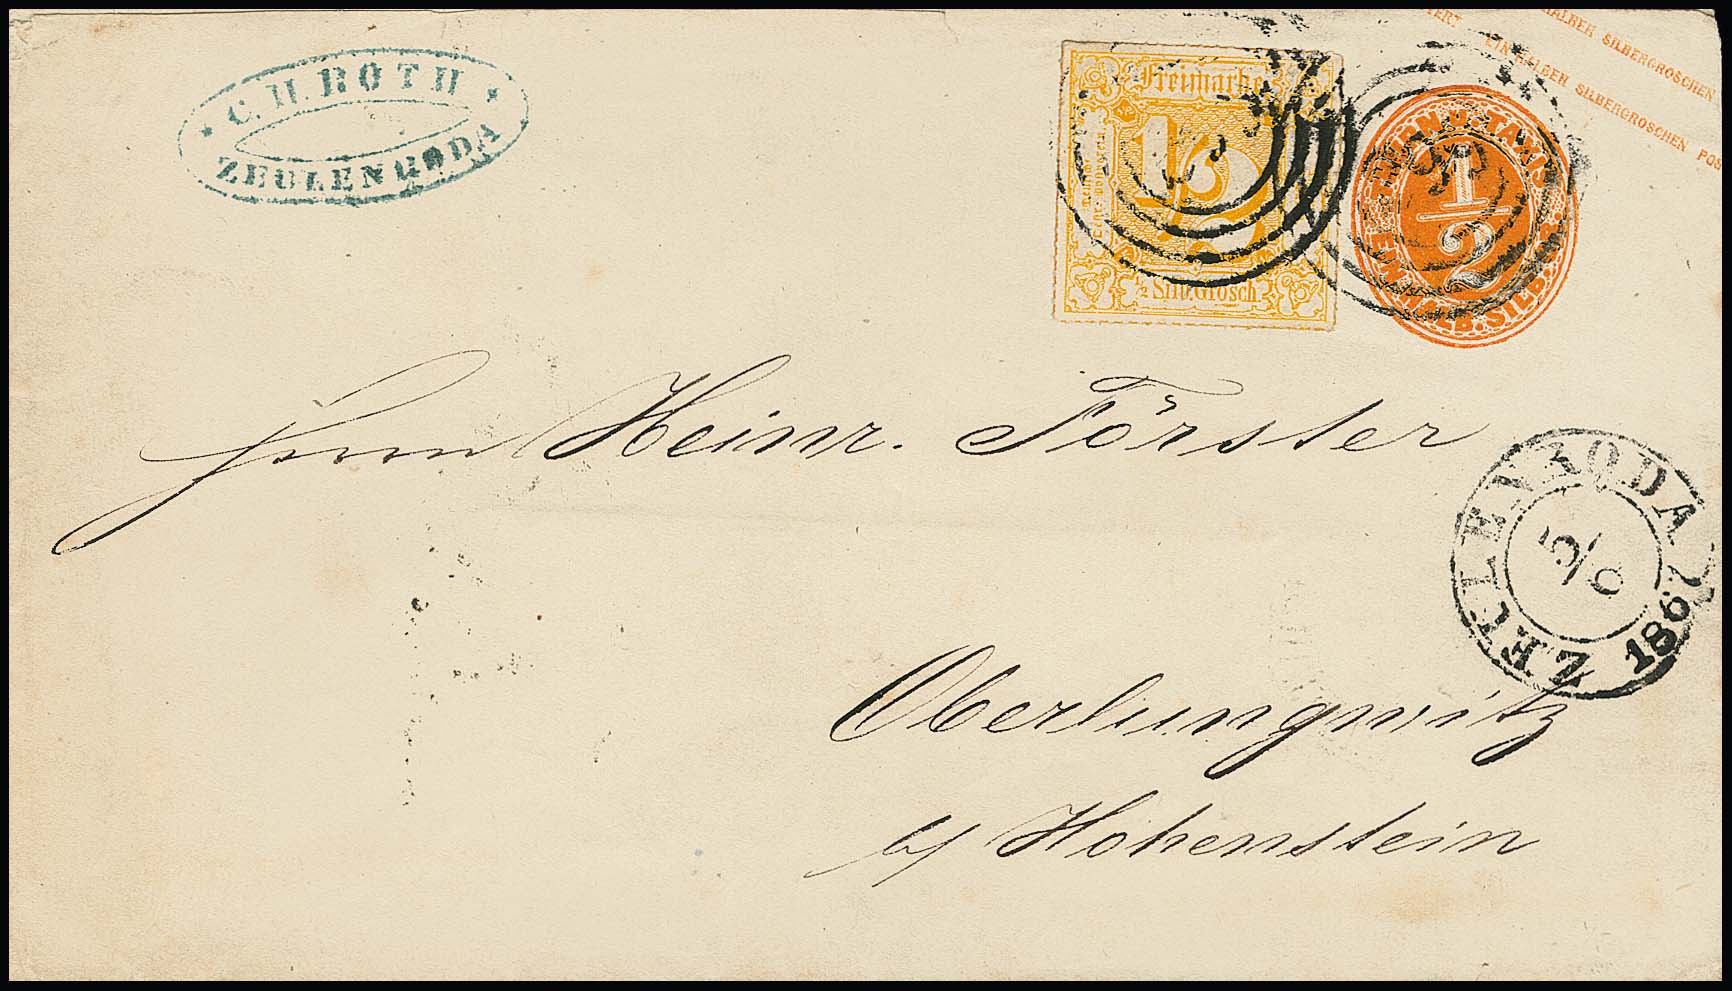 C. H. ROTH
ZEULENRODA
Freimarke
1/2
1/2 Silb. Grosch.
THURN U. TAXIS
1/2
EIN HALB. SILB. GR.
HALBER SILBERGROSCHEN
EIN HALBER SILBERGROSCHEN POS
Herrn Heinr. Förster
ZEULENRODA
5/6
1867
Oberlungwitz
b/ Hohenstein